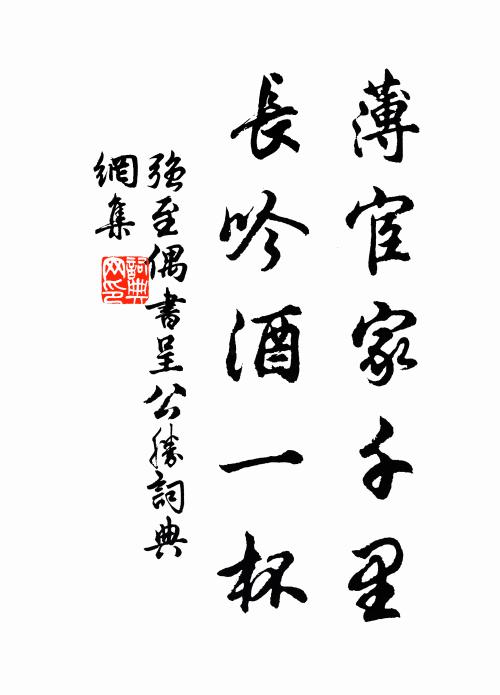 薄宦家千里
長吟酒一杯
強至偶書呈公勝詞典
網集
詞典網印